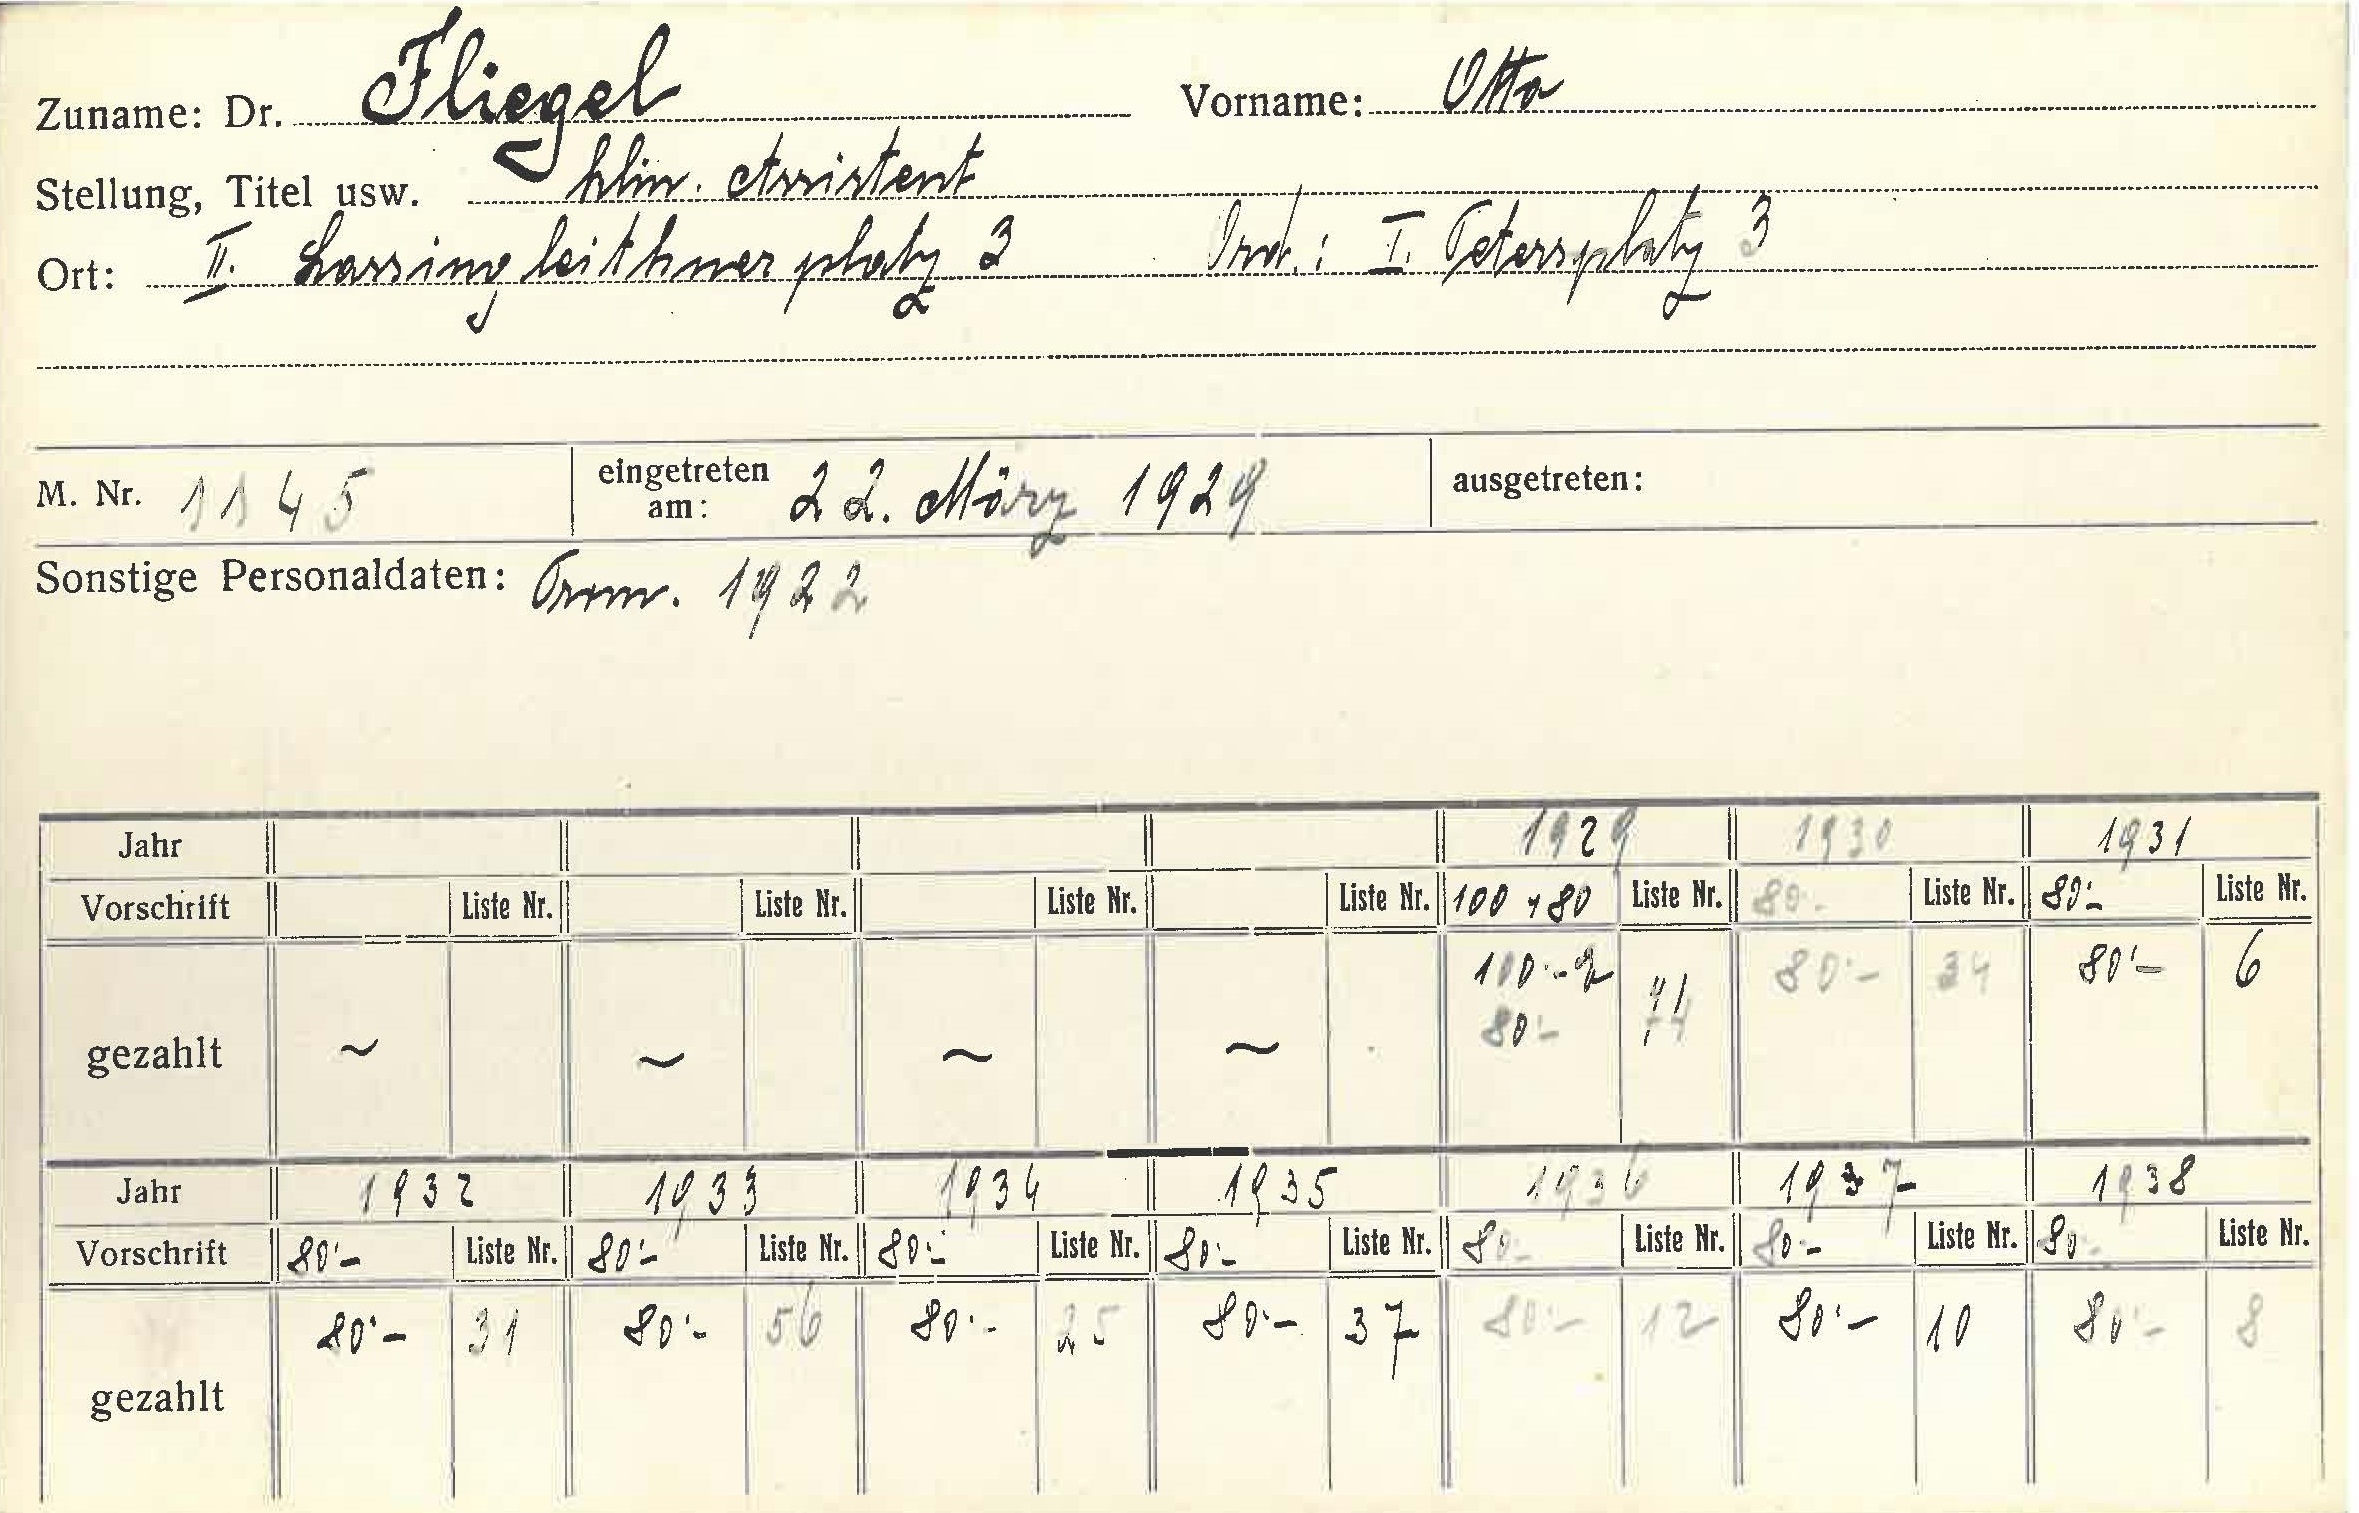 Zuname: Dr. Fliegel Vorname: Otto
Stellung, Titel usw. klin. Assistent
Ort: II. Lassingleithnerplatz 3 Ord.: I. Petersplatz 3
M. Nr. 1145 eingetreten am: 22. März 1929 ausgetreten:
Sonstige Personaldaten: Prom. 1922
Jahr 1929 1930 1931
Vorschrift Liste Nr. Liste Nr. Liste Nr. Liste Nr. 100 + 80 Liste Nr. 80.- Liste Nr. 80.- Liste Nr.
100.- 80.- 34 80.- 6
gezahlt ~ ~ ~ ~ 80.-
Jahr 1932 1933 1934 1935 1936 1937 1938
Vorschrift 80.- Liste Nr. 80.- Liste Nr. 80.- Liste Nr. 80.- Liste Nr. 80.- Liste Nr. 80.- Liste Nr. 80.- Liste Nr.
80.- 31 80.- 56 80.- 25 80.- 37 80.- 12 80.- 10 80.- 8
gezahlt